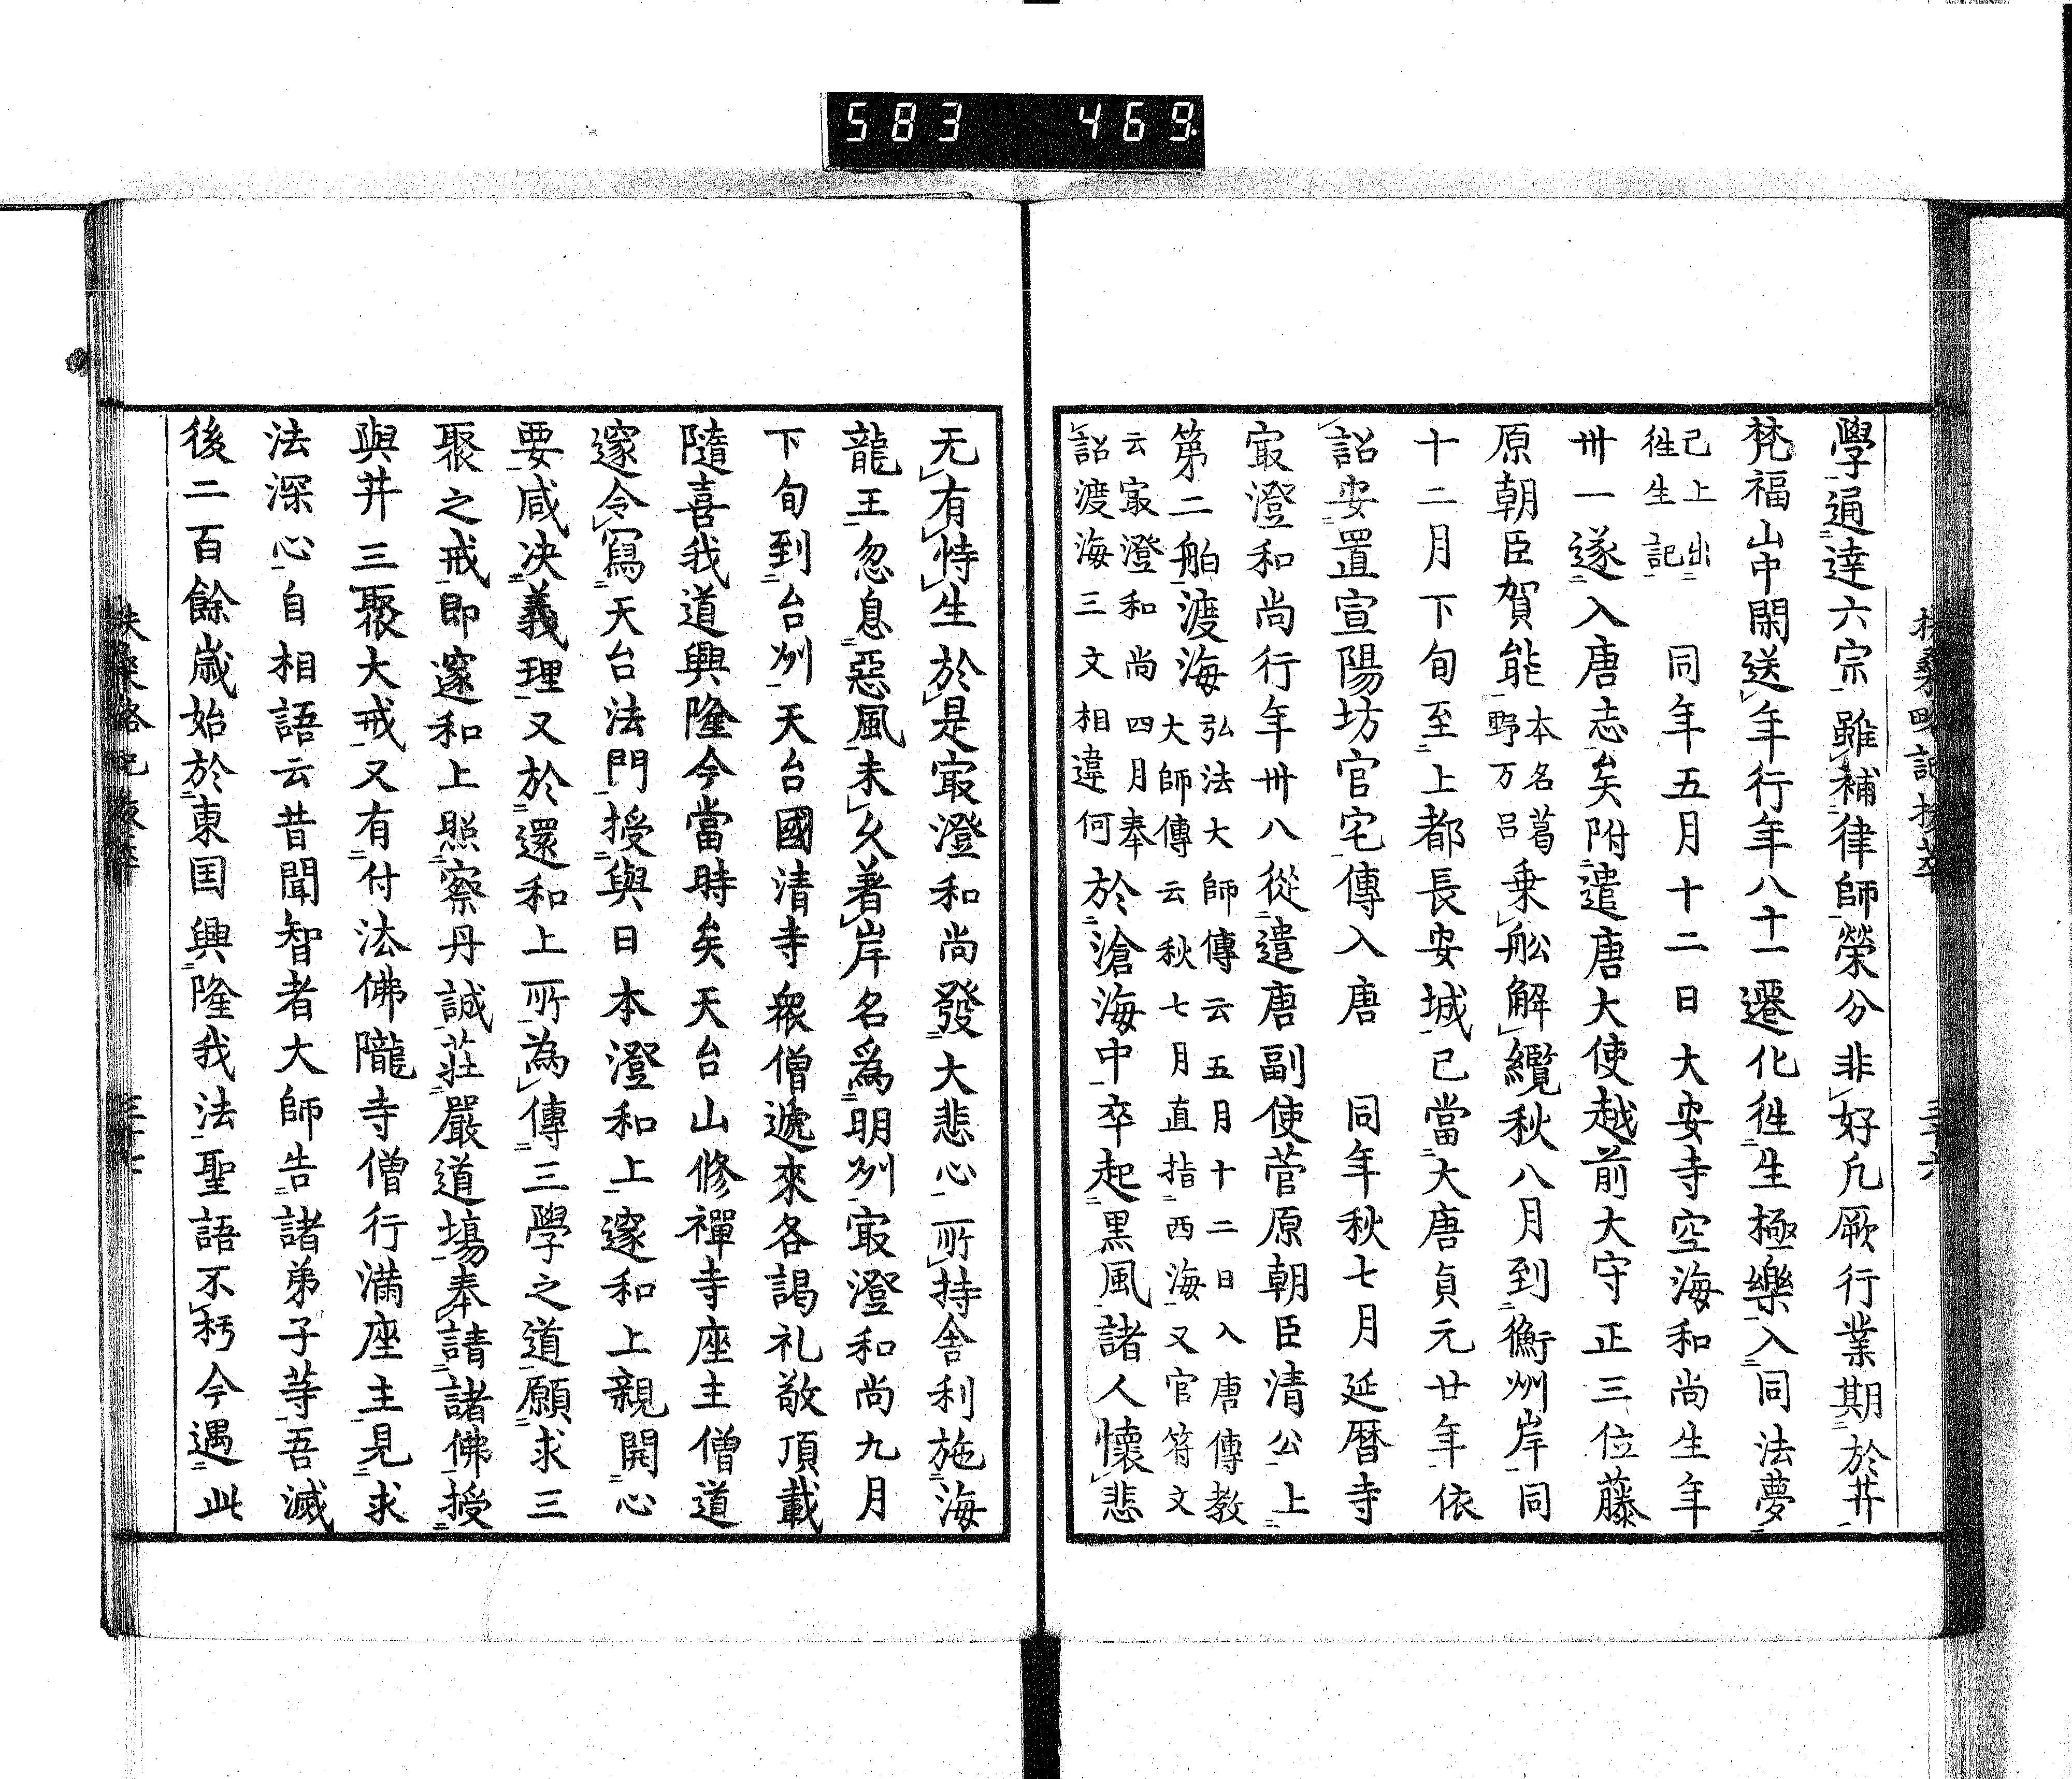 583 469
扶桑略記抜萃 三十六
學通達六宗雖補律師榮分非好凢厥行業期於井
梵福山中閑送年行年八十一遷化徃生極樂入同法夢
已上出
徃生記
同年五月十二日大安寺空海和尚生年
卅一遂入唐志矣附遣唐大使越前大守正三位藤
原朝臣賀能本名葛
野万呂
乗舩解纜秋八月到衡州岸同
十二月下旬至上都長安城已當大唐貞元廿年依
詔安置宣陽坊官宅傳入唐 同年秋七月延曆寺
冣澄和尚行年卅八從遣唐副使菅原朝臣清公上
第二舶渡海弘法大師傳云五月十二日入唐傳教
大師傳云秋七月直指西海又官符文
云冣澄和尚四月奉
詔渡海三文相違何
於滄海中卒起黒風諸人懷悲
无有恃生於是冣澄和尚發大悲心所持舎利施海
龍王忽息惡風未久著岸名爲明州冣澄和尚九月
下旬到台州天台國清寺衆僧遞來各謁礼敬頂載
隨喜我道興隆今當時矣天台山修禪寺座主僧道
邃令寫天台法門授與日本澄和上邃和上親開心
要咸决義理又於還和上所為傳三學之道願求三
聚之戒即邃和上照察丹誠莊嚴道場奉請諸佛授
與井三聚大戒又有付法佛隴寺僧行滿座主見求
法深心自相語云昔聞智者大師告諸弟子等吾滅
後二百餘歳始於東囯興隆我法聖語不朽今遇此
扶桑略記抜萃 三十七